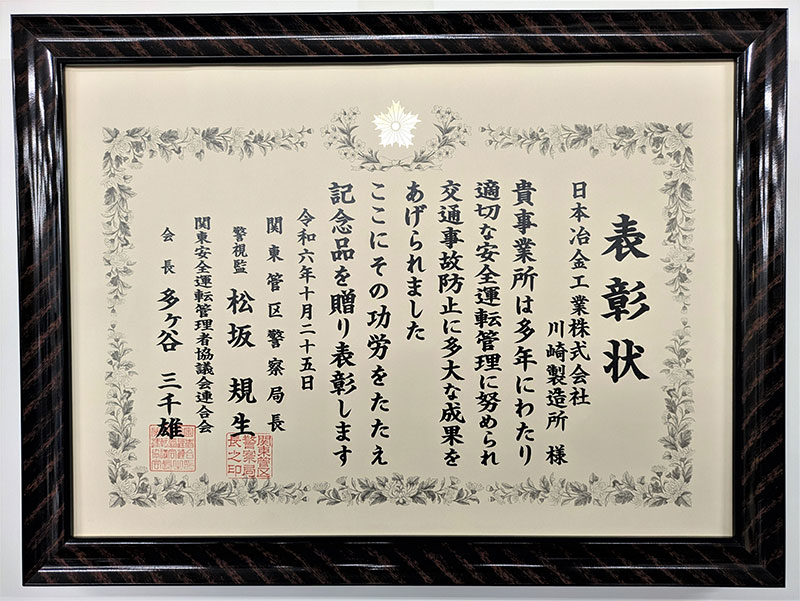 表彰状
日本冶金工業株式会社
川崎製造所 様
貴事業所は多年にわたり
適切な安全運転管理に努められ
交通事故防止に多大な成果を
あげられました
ここにその功労をたたえ
記念品を贈り表彰します
令和六年十月二十五日
関東管区警察局長
警視監 松坂規生
関東管区警察局長之印
関東安全運転管理者協議会連合会
会長 多ヶ谷三千雄